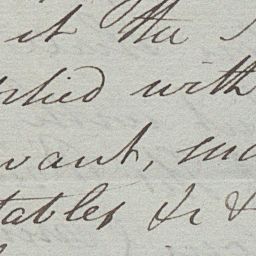 it the
plied with
want, suc
tables &c &